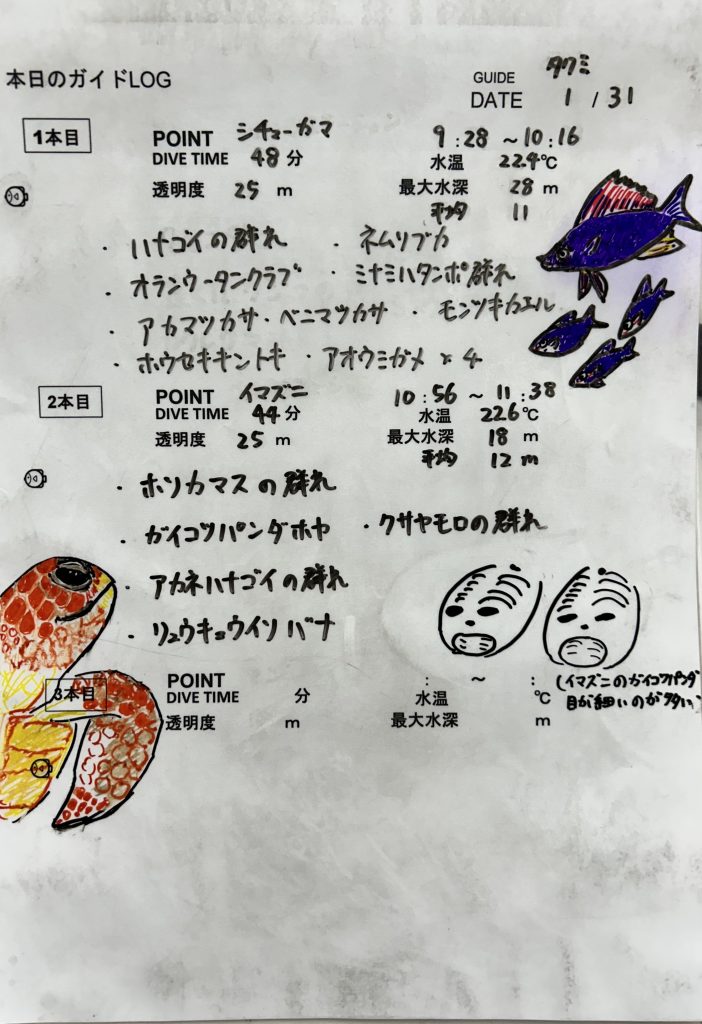 本日のガイドLOG
GUIDE タクミ
DATE 1 / 31
1本目 POINT シチューガマ 9:28 ~ 10:16
DIVE TIME 48分 水温 22.4℃
透明度 25 m 最大水深 28 m
平均 11
・ハナゴイの群れ ・ネムリブカ
・オランウータンクラブ ・ミナミハタンポ群れ
・アカマツカサ・ベニマツカサ ・モンツキカエル
・ホウセキキントキ ・アオウミガメ×4
2本目 POINT イマズニ 10:56 ~ 11:38
DIVE TIME 44分 水温 22.6℃
透明度 25 m 最大水深 18 m
平均 12 m
・ホソカマスの群れ
・ガイコツパンダホヤ ・クサヤモロの群れ
・アカネハナゴイの群れ
・リュウキュウイソバナ
3本目 POINT : ~ :
DIVE TIME 分 水温 ℃
透明度 m 最大水深 m
(イマズニのガイコツパンダ
目が細いのが多い)